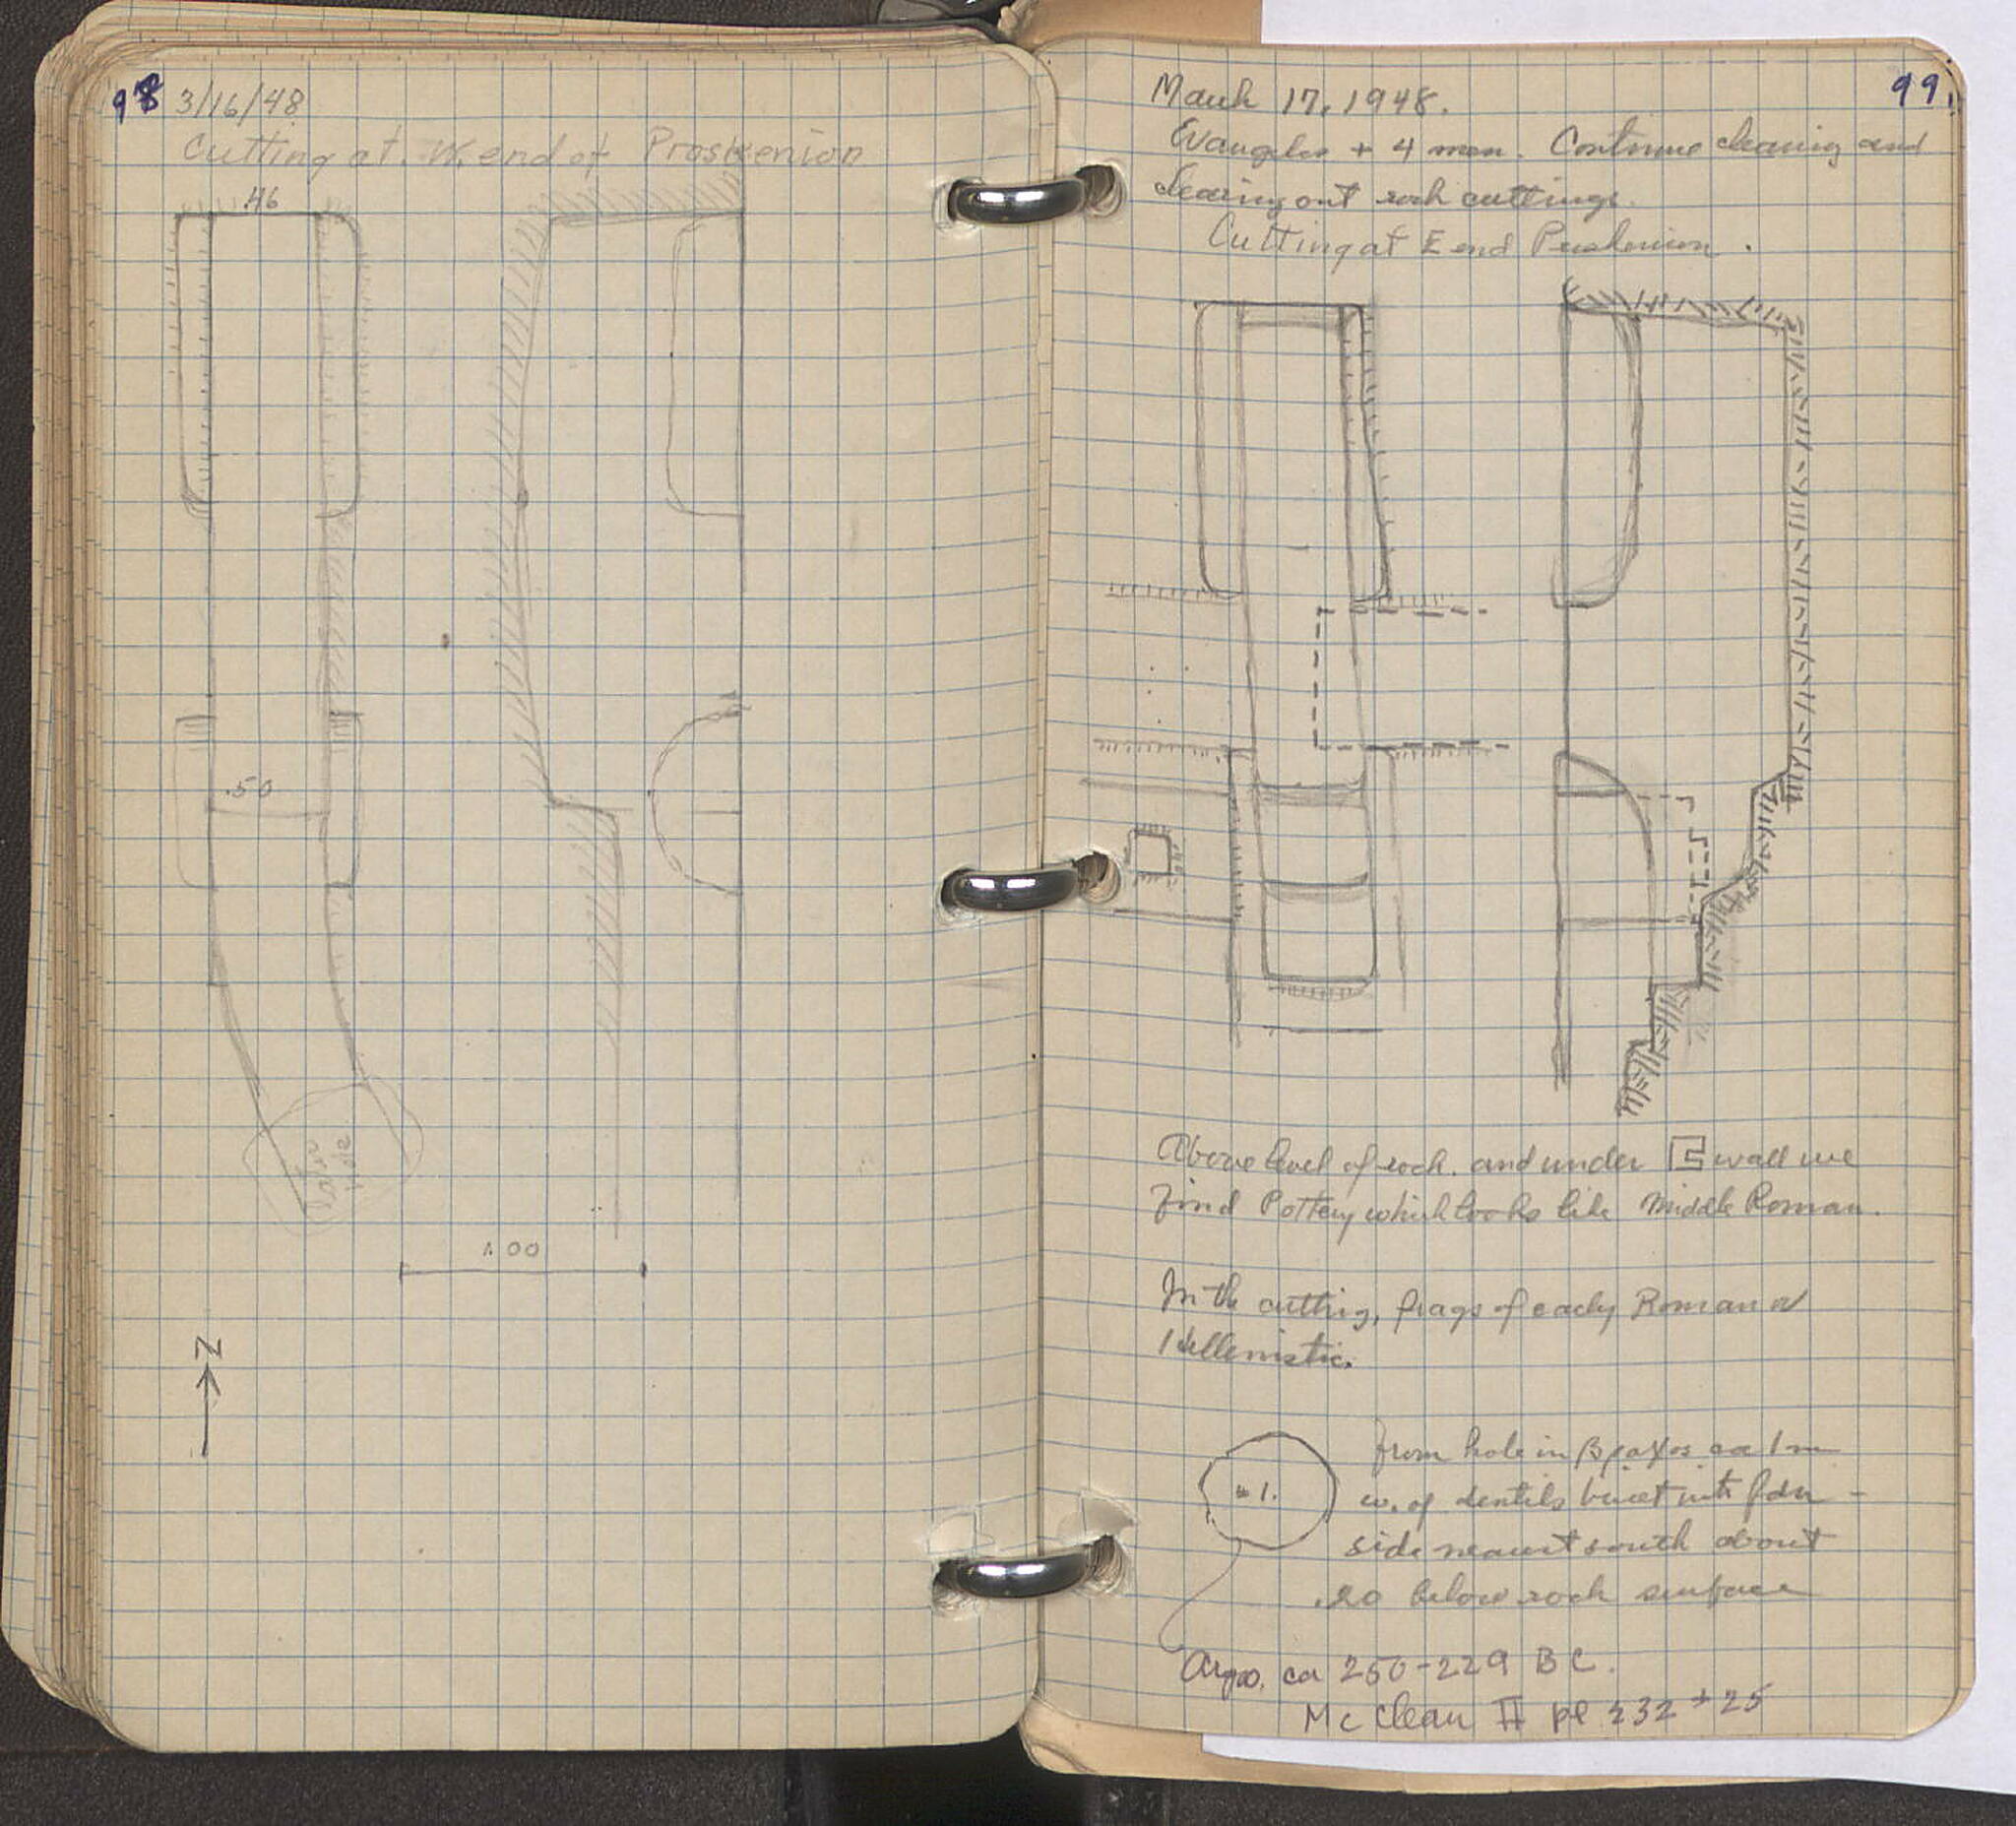 98 3/16/48
Cutting at W. end of Proskenion
.46
.50
Later
Hole.
1.00
N
99.
March 17, 1948.
Evangelos + 4 men. Continue cleaning and
clearing out rock cuttings.
Cutting at E end Proskenion.
Above level of rock. and under wall we
find Pottery which looks like Middle Roman.
In the cutting, frags of early Roman or
Hellenistic.
#1.
From hole in βράχος ca 1 m
w. of dentils built into fdn -
side nearest south about
.20 below rock surface
Argos, ca 250-229 BC.
McClean II pl 232 25